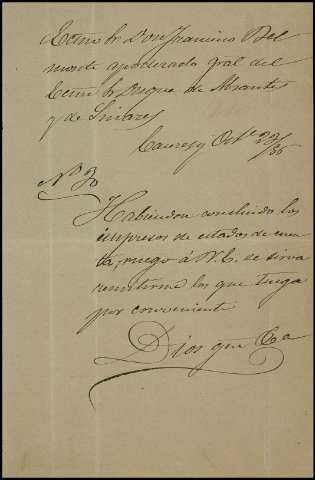 Excmo Sr Don Francisco Bel
monte apoderado gral del
Excmo Sr Duque de Abrantes
y de Linares
Octe 23/86
Nº 30
Habiendon concluido los
impresos de estados de cuen
ta, ruego á V.E. se sirva
remitirme los que tenga
por conveniente
Dios gue &a